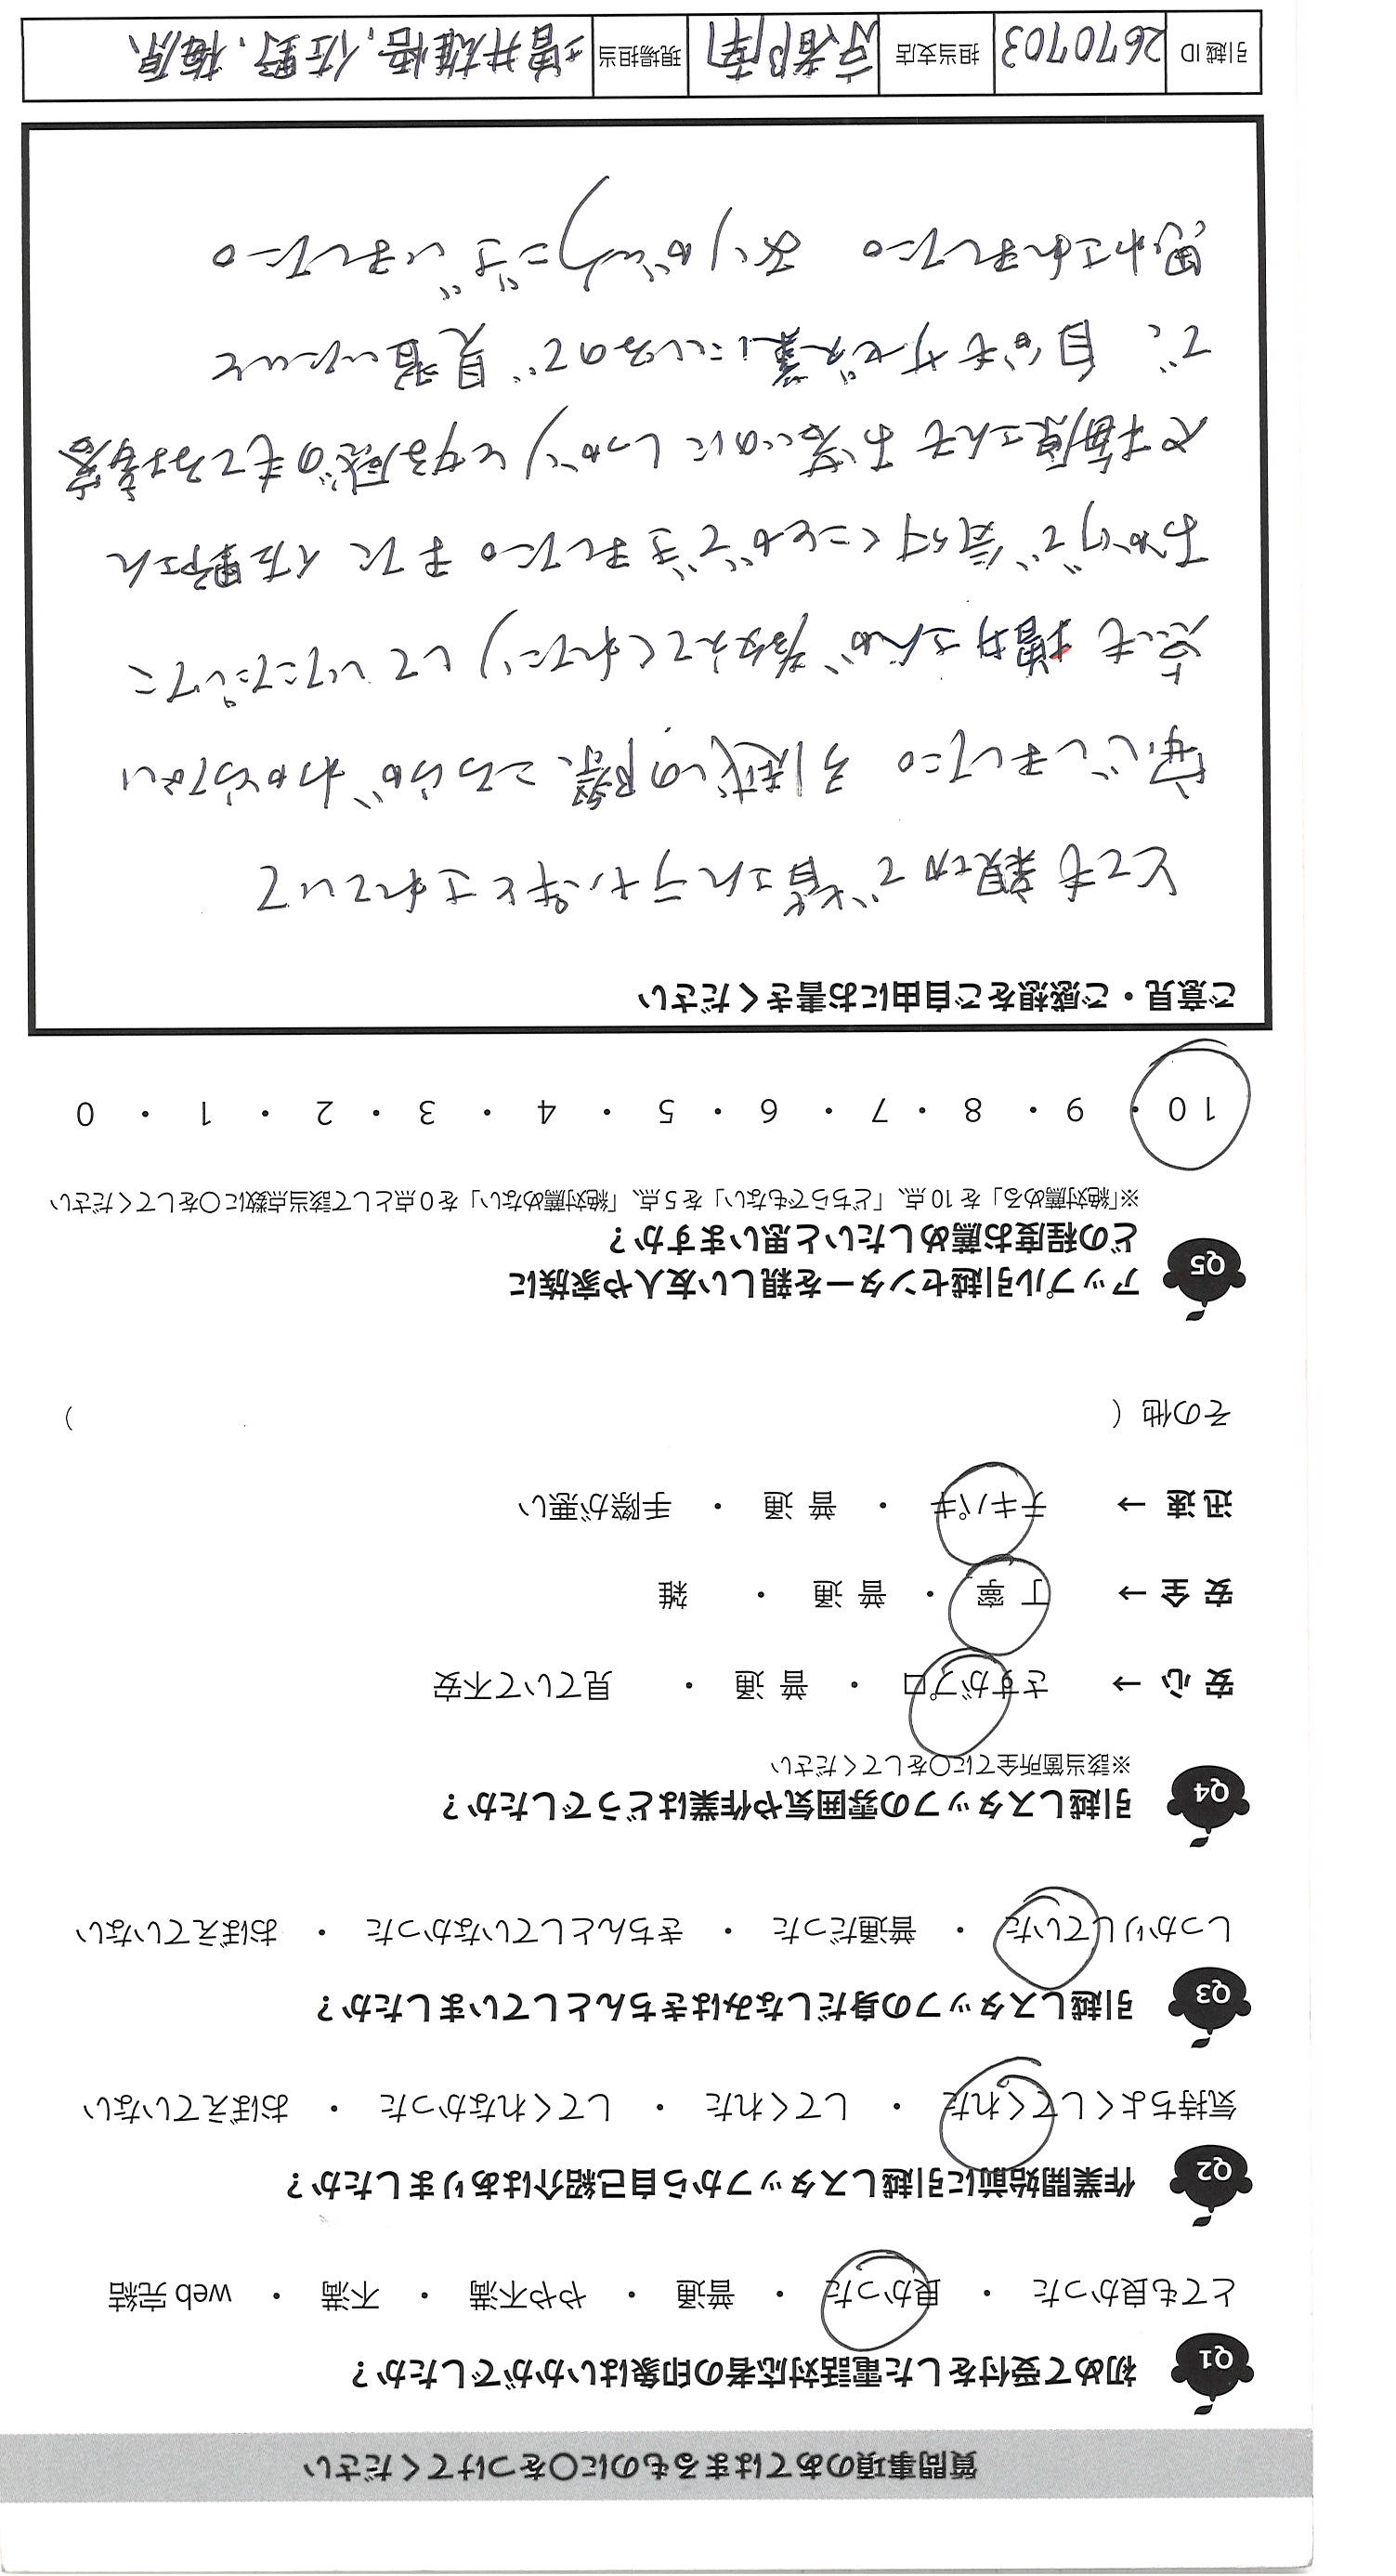 質問事項のあてはまるものに〇をつけてください
Q1 初めて受付をした電話対応者の印象はいかがでしたか？
とても良かった ・ 良かった ・ 普通 ・ やや不満 ・ 不満 ・ web 完結
Q2 作業開始前に引越しスタッフから自己紹介はありましたか？
気持ちよくしてくれた ・ してくれた ・ してくれなかった ・ おぼえていない
Q3 引越しスタッフの身だしなみはきちんとしていましたか？
しっかりしていた ・ 普通だった ・ きちんとしていなかった ・ おぼえていない
Q4 引越しスタッフの雰囲気や作業はどうでしたか？
※該当箇所全てに〇をしてください
安 心 → さすがプロ ・ 普 通 ・ 見ていて不安
安 全 → 丁 寧 ・ 普 通 ・ 雑
迅 速 → テキパキ ・ 普 通 ・ 手際が悪い
その他（ ）
Q5 アップル引越センターを親しい友人や家族に
どの程度お薦めしたいと思いますか？
※「絶対薦める」を 10 点、「どちらでもない」を 5 点、「絶対薦めない」を 0 点として該当点数に〇をしてください
10 ・ 9 ・ 8 ・ 7 ・ 6 ・ 5 ・ 4 ・ 3 ・ 2 ・ 1 ・ 0
ご意見・ご感想をご自由にお書きください
とても親切で皆さんテキパキとされていて
安心しました。引越しの際、こちらがわからない
点も増井さんが教えてくれたりしていただいて
おかげで気づくことができました。又に佐野さん
や梅原さんもお若いのにしっかりとする感のもてる接客
で、自分もサービス業にいるので見習いたいと
思わされました。ありがとうございました。
引越 ID 2670703 担当支店 京都南 現場担当 増井雄悟、佐野、梅原、